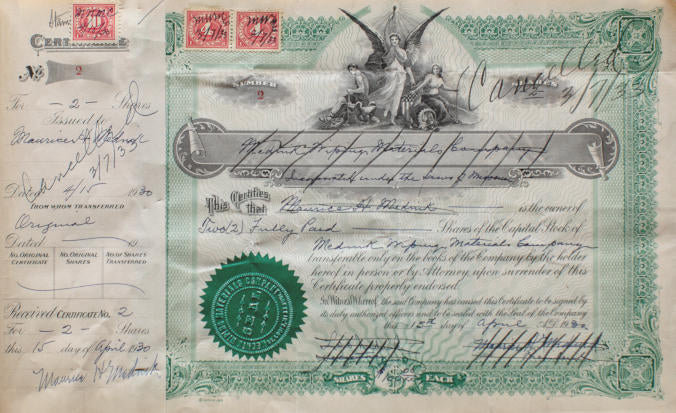 CERTIFICATE
No 2
For -2- Shares
Issued to
Maurice H. Mednik
Cancelled
3/7/33
Dated 4/15 1930
FROM WHOM TRANSFERRED
Original
Dated 19
NO. ORIGINAL CERTIFICATE
NO. ORIGINAL SHARES
NO. OF SHARES TRANSFERRED
Received CERTIFICATE No. 2
For -2- Shares
this 15 day of April 1930
Maurice H. Mednik
NUMBER
2
SHARES
2
Cancelled
3/7/33
Mednik Wiping Materials Company
Incorporated under the Laws of Missouri
This Certifies that Maurice H. Mednik is the owner of
Two (2) Fully Paid Shares of the Capital Stock of
Mednik Wiping Materials Company
transferable only on the books of the Company by the holder
hereof in person or by Attorney upon surrender of this
Certificate properly endorsed.
In Witness Whereof, the said Company has caused this Certificate to be signed by
its duly authorized officers and to be sealed with the Seal of the Company
this 15th day of April A.D. 1930
SEAL
SHARES
EACH